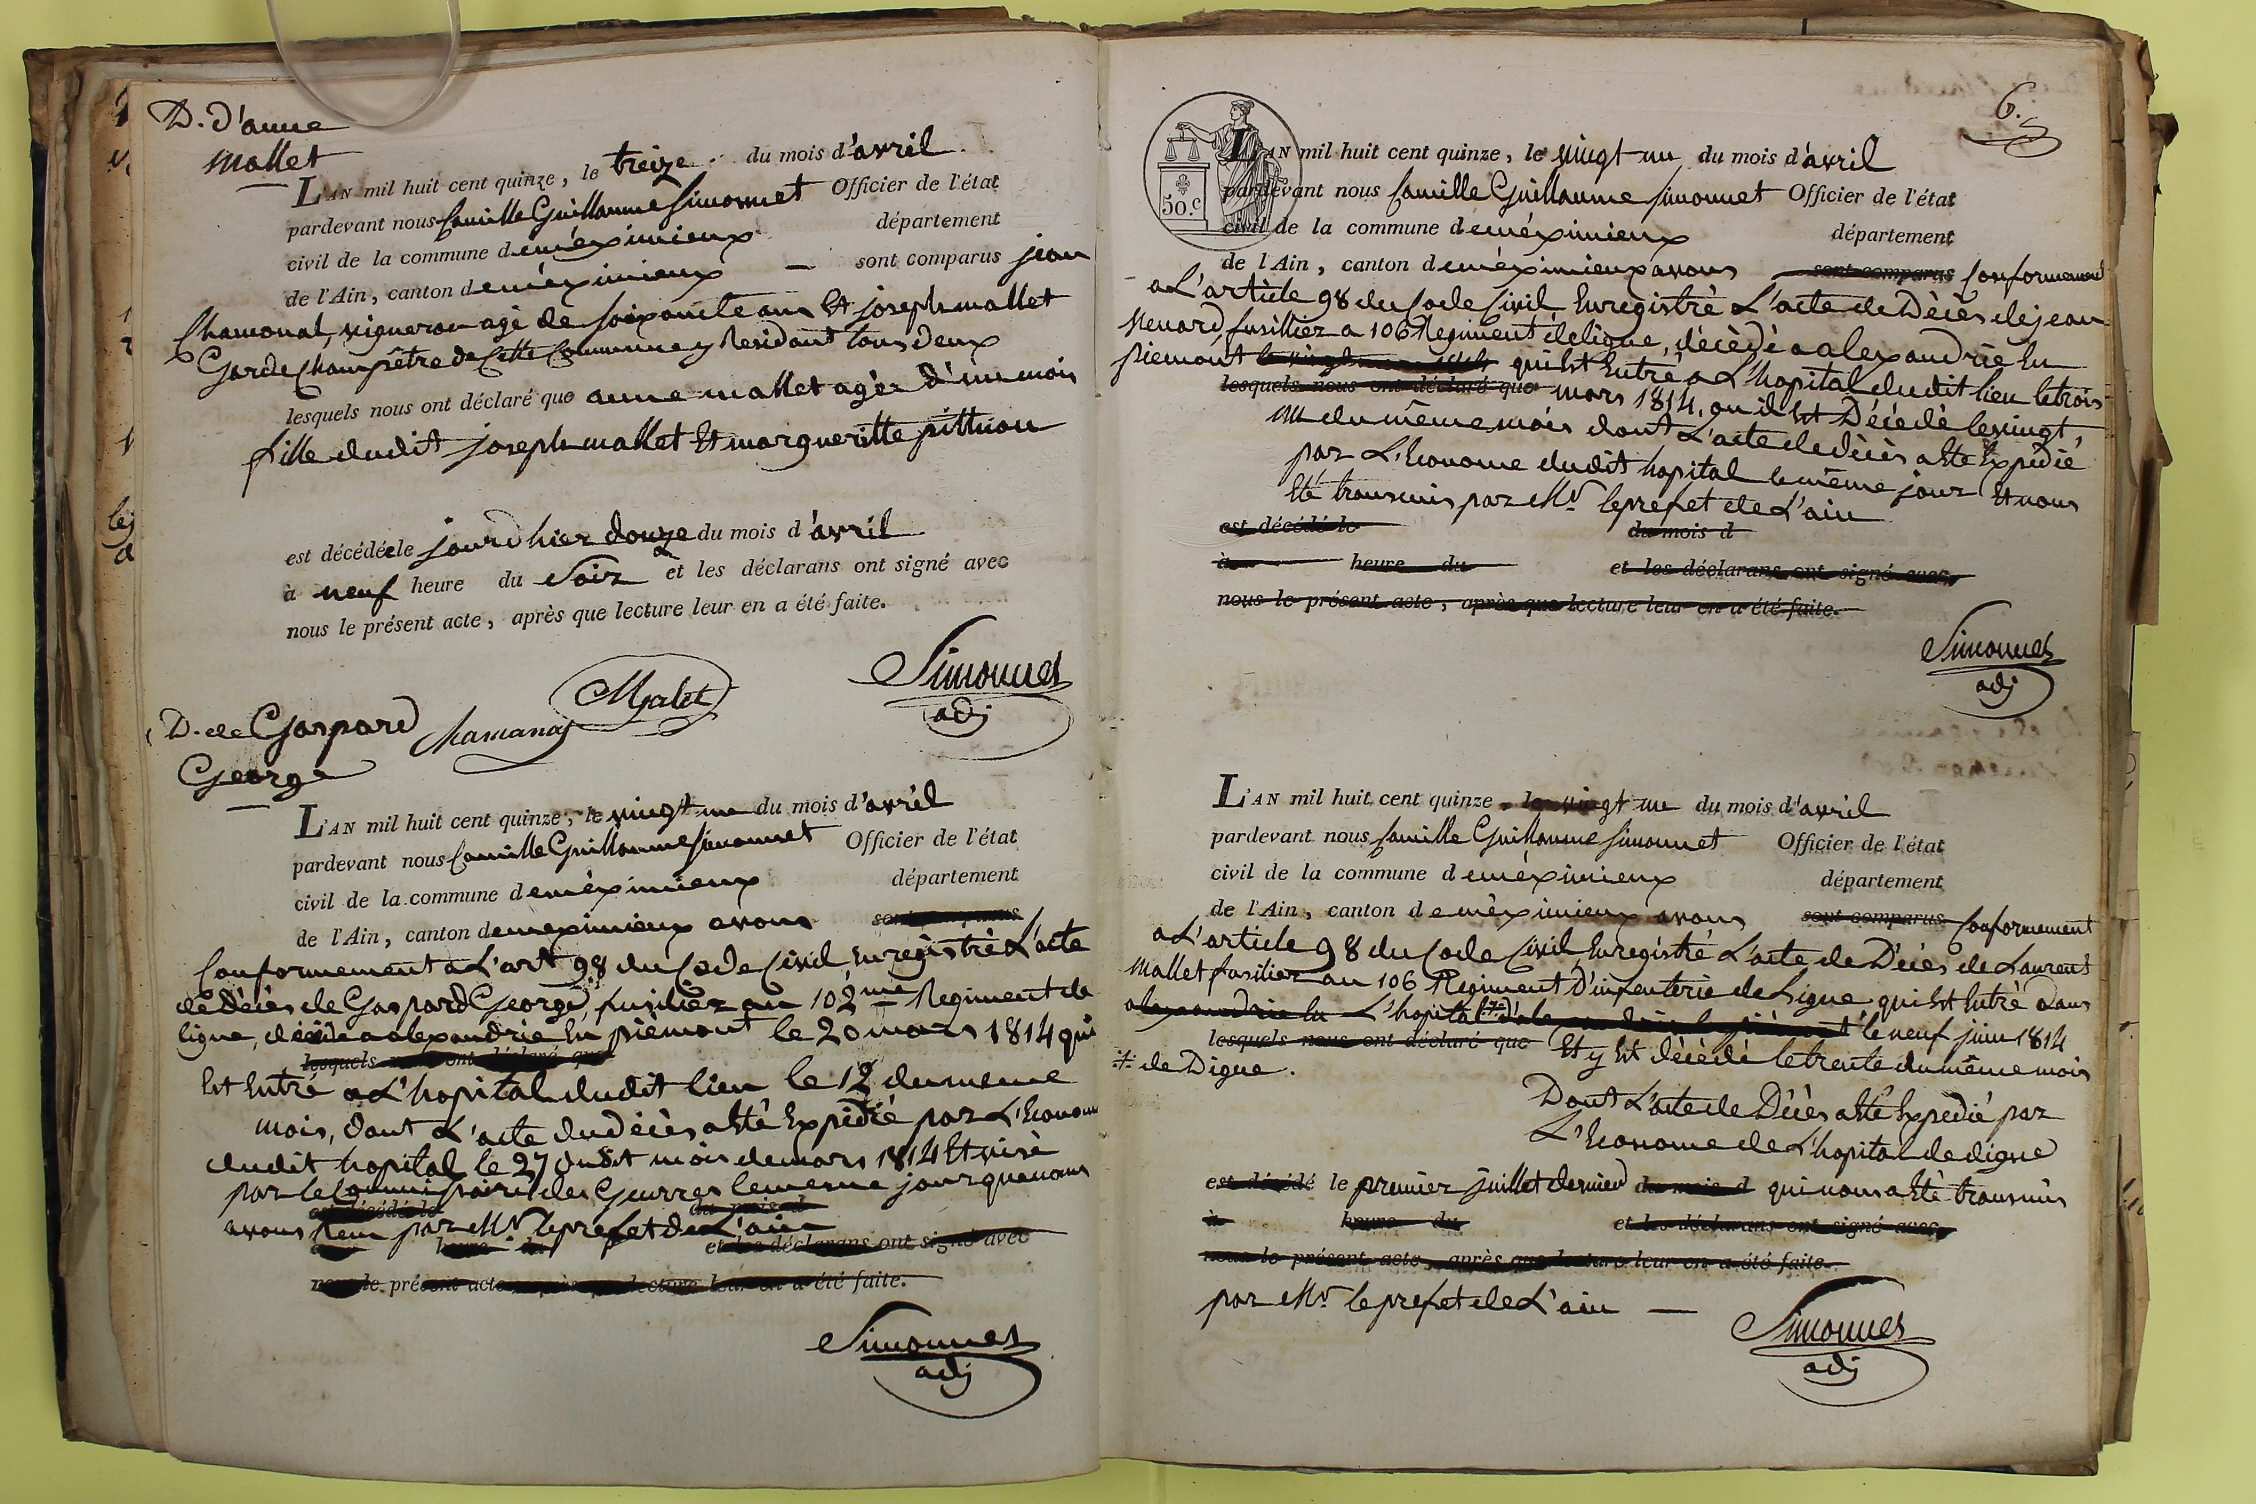 D. d'anne
mallet
L'AN mil huit cent quinze, le treize du mois d'avril
pardevant nous Camille Guillaume Simonnet Officier de l'état
civil de la commune de méximieux département
de l'Ain, canton de méximieux — sont comparus jean
Chamonal, vigneron agé de soixante ans Et joseph mallet
Garde Champêtre de Cette Commune y Residant tous deux
lesquels nous ont déclaré que anne mallet agée d'un mois
fille dudit joseph mallet Et margueritte pittion
est décédée le jourd'hier douze du mois d'avril
à neuf heure du Soir et les déclarans ont signé avec
nous le présent acte, après que lecture leur en a été faite.
Malet
Simonnet
adj
D. de Gaspard
George
L'AN mil huit cent quinze, le vingt un du mois d'avril
pardevant nous Camille Guillaume Simonnet Officier de l'état
civil de la commune de méximieux département
de l'Ain, canton de meximieux avons sont comparus
Conformement a L'art 98 du Code Civil Enregistré L'acte
de décès de Gaspard George, fusilier au 102me Regiment de
ligne, décédé a alexandrie En piemont le 20 mars 1814 qui
lesquels nous ont déclaré que
Est Entré a L'hopital dudit lieu le 12 du meme
mois, dont L'acte du décès a Eté Expédié par L'Econome
dudit hopital le 27 dudit mois de mars 1814 Et visé
par le Commissaire des Guerres le meme jour que nous
est décédé le du mois d
avons Recu par Mr. le prefet de L'ain
à heure du et les déclarans ont signé avec
nous le présent acte, après que lecture leur en a été faite.
Simonnet
adj
6.
50.c
L'AN mil huit cent quinze, le vingt un du mois d'avril
pardevant nous Camille Guillaume Simonnet Officier de l'état
civil de la commune de méximieux département
de l'Ain, canton de méximieux avons sont comparus Conformement
a L'article 98 du Code Civil Enregistré L'acte de Décès de jean
Menard, fusillier a 106 Regiment de ligne, décédé a alexandrie En
piemont qui Est Entré a L'hopital dudit lieu le trois
lesquels nous ont déclaré que mars 1814, ou il Est Décédé le vingt
un du même mois dont L'acte de décès a Eté Expédié
par L'Econome dudit hopital le même jour Et nous
Eté transmis par Mr. le prefet de L'ain
est décédé le du mois d
à heure du et les déclarans ont signé avec
nous le présent acte, après que lecture leur en a été faite.
Simonnet
adj
L'AN mil huit cent quinze, le vingt un du mois d'avril
pardevant nous Camille Guillaume Simonnet Officier de l'état
civil de la commune de méximieux département
de l'Ain, canton de méximieux avons sont comparus Conformement
a L'article 98 du Code Civil Enregistré L'acte de Décès de Laurent
Mallet fusilier au 106 Regiment D'infenterie de Ligne qui Est Entré dans
L'hopital le neuf juin 1814
lesquels nous ont déclaré que Et y Est décédé le trente du même mois
de Digne.
Dont L'acte de Décès a Eté Expedié par
L'Econome de L'hopital de digne
est décédé le premier juillet dernier du mois d qui nous a Eté transmis
à heure du et les déclarans ont signé avec
nous le présent acte, après que lecture leur en a été faite.
par Mr. le prefet de L'ain —
Simonnet
adj